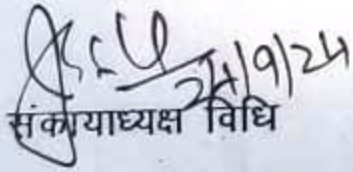 24/9/24
संकायाध्यक्ष विधि